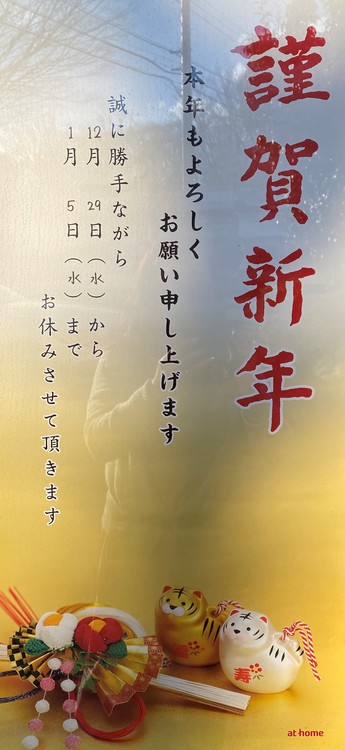 謹賀新年
本年もよろしく
お願い申し上げます
誠に勝手ながら
12月 29日（水）から
1月 5日（水）まで
お休みさせて頂きます
寿
at home